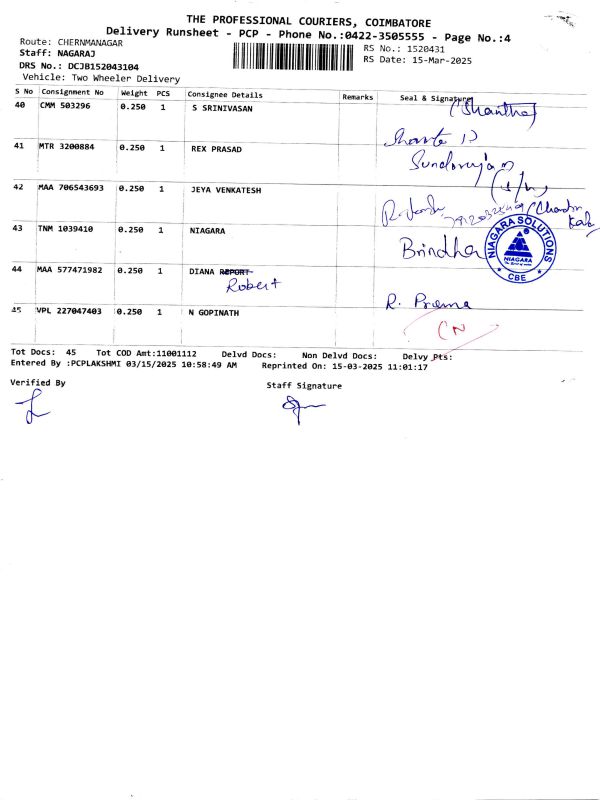 THE PROFESSIONAL COURIERS, COIMBATORE
Delivery Runsheet - PCP - Phone No.:0422-3505555 - Page No.:4
Route: CHERNMANAGAR
RS No.: 1520431
Staff: NAGARAJ
RS Date: 15-Mar-2025
DRS No.: DCJB152043104
Vehicle: Two Wheeler Delivery
S No Consignment No Weight PCS Consignee Details Remarks Seal & Signature
40 CMM 503296 0.250 1 S SRINIVASAN (Shantha)
41 MTR 3200884 0.250 1 REX PRASAD
42 MAA 706543693 0.250 1 JEYA VENKATESH
43 TNM 1039410 0.250 1 NIAGARA Brindha
NIAGARA SOLUTIONS
NIAGARA
CBE
44 MAA 577471982 0.250 1 DIANA REPORT
Robert
R. Prema
45 VPL 227047403 0.250 1 N GOPINATH
CN
Tot Docs: 45 Tot COD Amt:11001112 Delvd Docs: Non Delvd Docs: Delvy Pts:
Entered By :PCPLAKSHMI 03/15/2025 10:58:49 AM Reprinted On: 15-03-2025 11:01:17
Verified By
Staff Signature